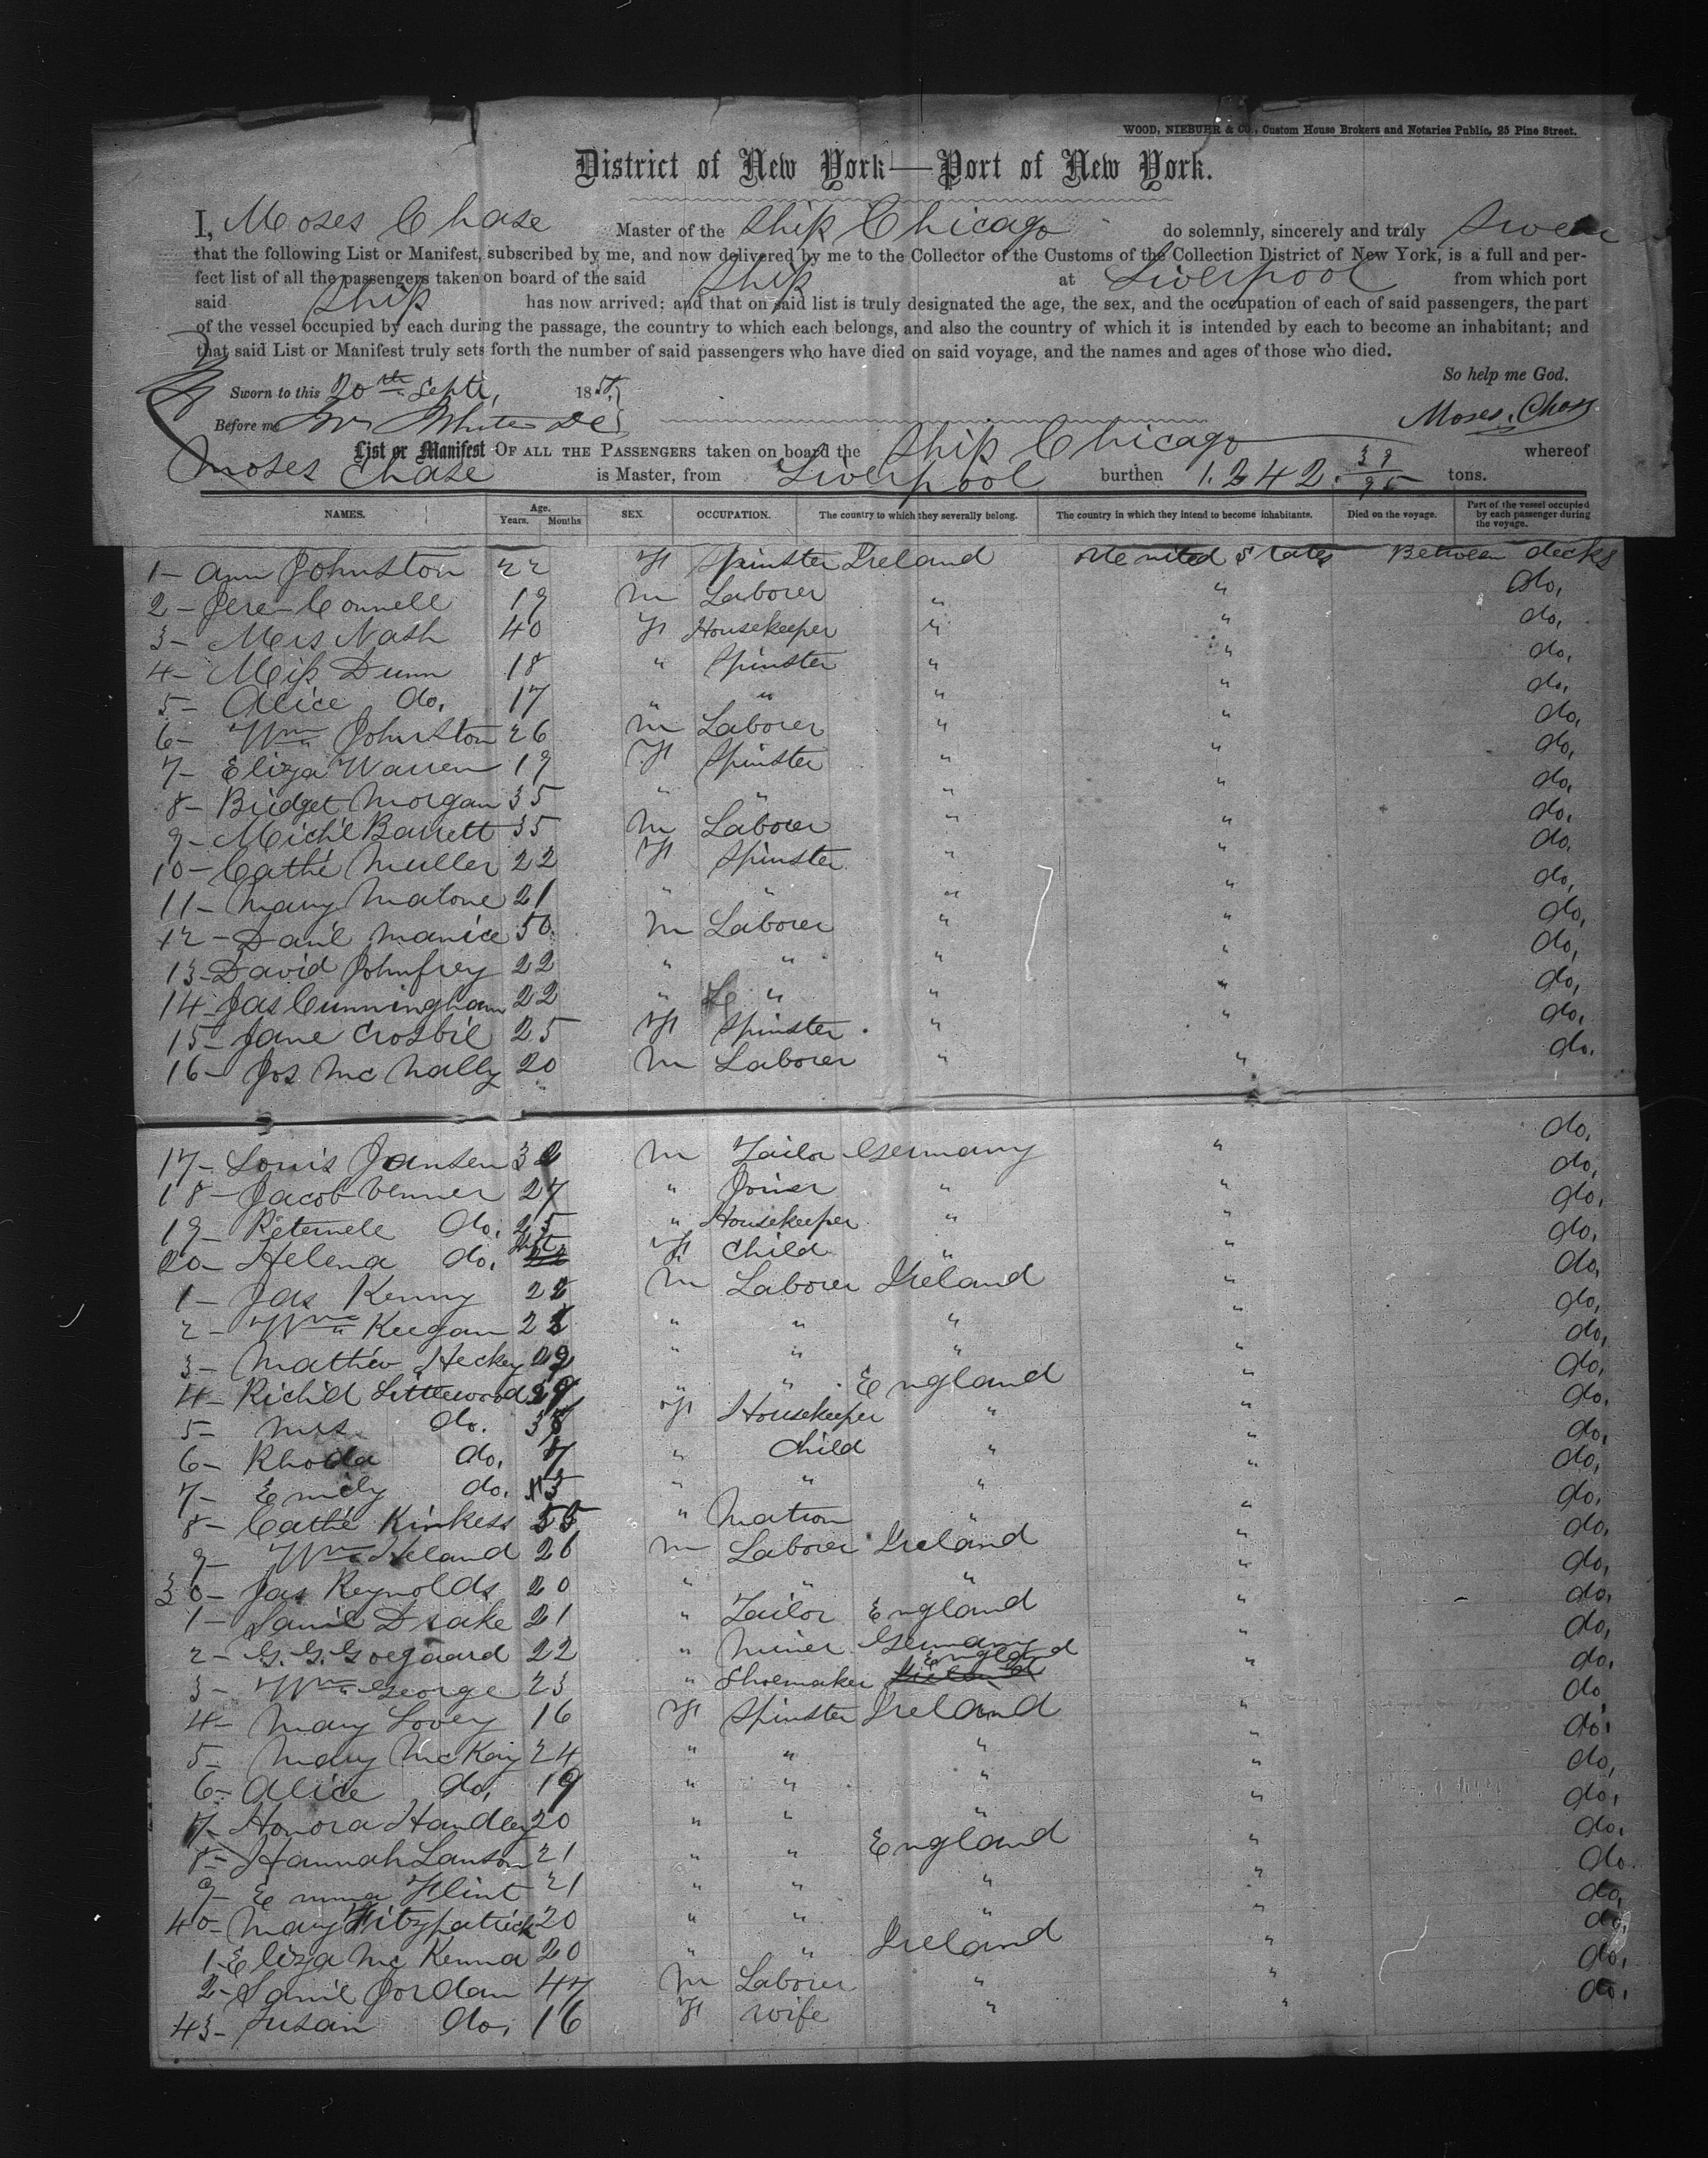 WOOD, NIEBUHR & CO., Custom House Brokers and Notaries Public, 25 Pine Street.
District of New York—Port of New York.
I, Moses Chase Master of the Ship Chicago do solemnly, sincerely and truly Swear
that the following List or Manifest, subscribed by me, and now delivered by me to the Collector of the Customs of the Collection District of New York, is a full and per-
fect list of all the passengers taken on board of the said Ship at Liverpool from which port
said Ship has now arrived; and that on said list is truly designated the age, the sex, and the occupation of each of said passengers, the part
of the vessel occupied by each during the passage, the country to which each belongs, and also the country of which it is intended by each to become an inhabitant; and
that said List or Manifest truly sets forth the number of said passengers who have died on said voyage, and the names and ages of those who died.
So help me God.
Sworn to this 20th Sept, 18
Before me Moses Chase
List or Manifest OF ALL THE PASSENGERS taken on board the Ship Chicago whereof
Moses Chase is Master, from Liverpool burthen 1.242. tons.
NAMES. Age. Years. Months SEX OCCUPATION. The country to which they severally belong. The country in which they intend to become inhabitants. Died on the voyage. Part of the vessel occupied by each passenger during the voyage.
1- Ann Johnston 22 F Spinster Ireland United States Between decks
2- Jere Connell 19 M Laborer " " do,
3- Mrs Nash 40 F Housekeeper " " do,
4- Miss Dunn 18 " Spinster " " do,
5- Alice do. 17 " " " " do,
6- Wm Johnston 26 M Laborer " " do,
7- Eliza Warren 19 F Spinster " " do,
8- Bridget Morgan 35 " " " " do,
9- Mich'l Barrett 35 M Laborer " " do,
10- Cathe Muller 22 F Spinster " " do,
11- Mary Malone 21 " " " " do,
12- Dan'l Manice 50 M Laborer " " do,
13- David Johnfrey 22 " " " " do,
14- Jas Cunningham 22 " " " " do,
15- Jane Crosbie 25 F Spinster " " do,
16- Jos McNally 20 M Laborer " " do.
17- Louis Jansen 32 M Tailor Germany " do,
18- Jacob Venner 27 " Joiner " " do,
19- do. 25 " Housekeeper " " do,
20- Helena do. F Child " " do,
1- Jas Kenny 22 M Laborer Ireland " do,
2- Wm Keegan " " " " do,
3- Mathew Heckey 29 " " " " do,
4- Rich'd Littlewood " " England " do,
5- Mrs do. 38 F Housekeeper " " do,
6- Rhoda do, 7 " Child " " do,
7- Emily do. " " " " do,
8- Cathe Kinkess 55 " Matron " " do,
9- Wm Ireland 26 M Laborer Ireland " do,
30- Jas Reynolds 20 " " " " do,
1- Sam'l Drake 21 " Tailor England " do,
2- G. G. Goegaard 22 " Miner Germany " do,
3- Wm George 23 " Shoemaker England " do.
4- Mary Lovey 16 F Spinster Ireland " do
5- Mary McKay 24 " " " " do,
6- Alice do, 19 " " " " do,
7- Honora Handley 20 " " " " do,
8- Hannah Lanson 21 " " England " do.
9- Emma Flint 21 " " " " do.
40- Mary Fitzpatrick 20 " " " " do,
1- Eliza McKenna 20 " " Ireland " do,
2- Sam'l Jordan 47 M Laborer " " do,
43- Susan do, 16 F Wife " " do,